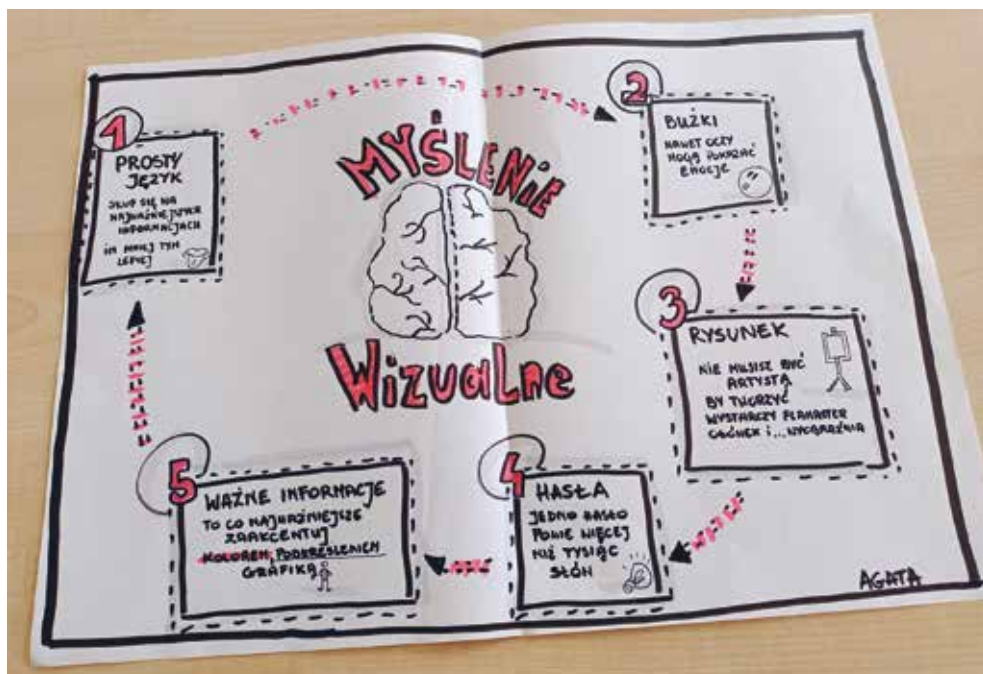 MYŚLENIE
WIZUALNE
1
PROSTY
JĘZYK
SKUP SIĘ NA
NAJWAŻNIEJSZYCH
INFORMACJACH
IM MNIEJ TYM
LEPIEJ
2
BUŹKI
NAWET OCZY
MOGĄ POKAZAĆ
EMOCJE
3
RYSUNEK
NIE MUSISZ BYĆ
ARTYSTĄ
BY TWORZYĆ
WYSTARCZY FLAMASTER
OŁÓWEK i ... WYOBRAŹNIA
4
HASŁA
JEDNO HASŁO
POWIE WIĘCEJ
NIŻ TYSIĄC
SŁÓW
5
WAŻNE INFORMACJE
TO CO NAJWAŻNIEJSZE
ZAAKCENTUJ
KOLOREM, PODKREŚLENIEM
GRAFIKĄ
AGATA